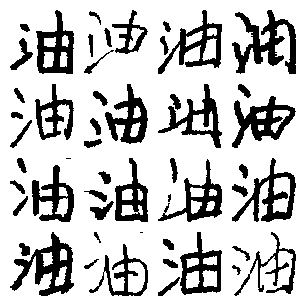 油油油油
油油油油
油油油油
油油油油